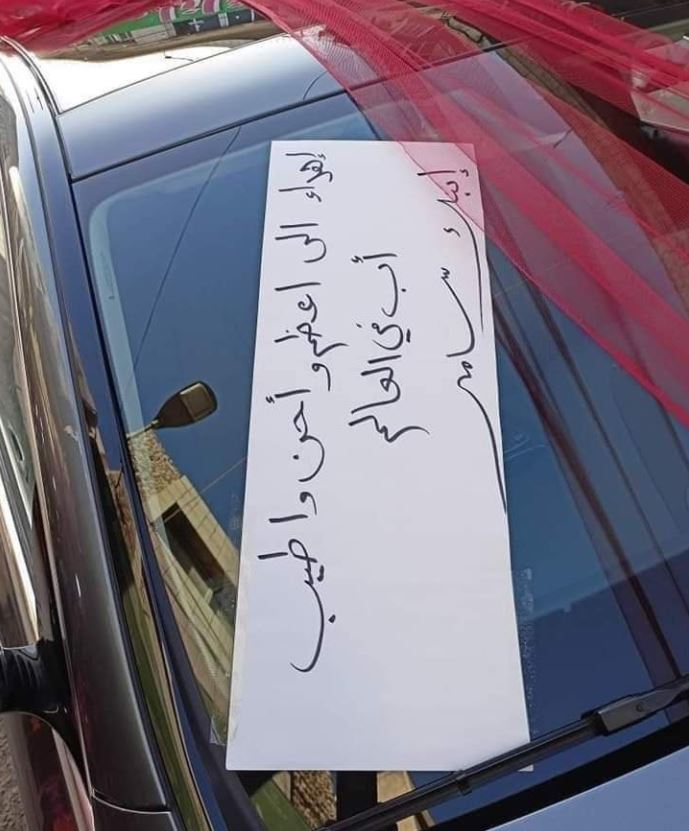 إهداء الى اعظم و أحن واطيب
أب في العالم
إبنك سامر